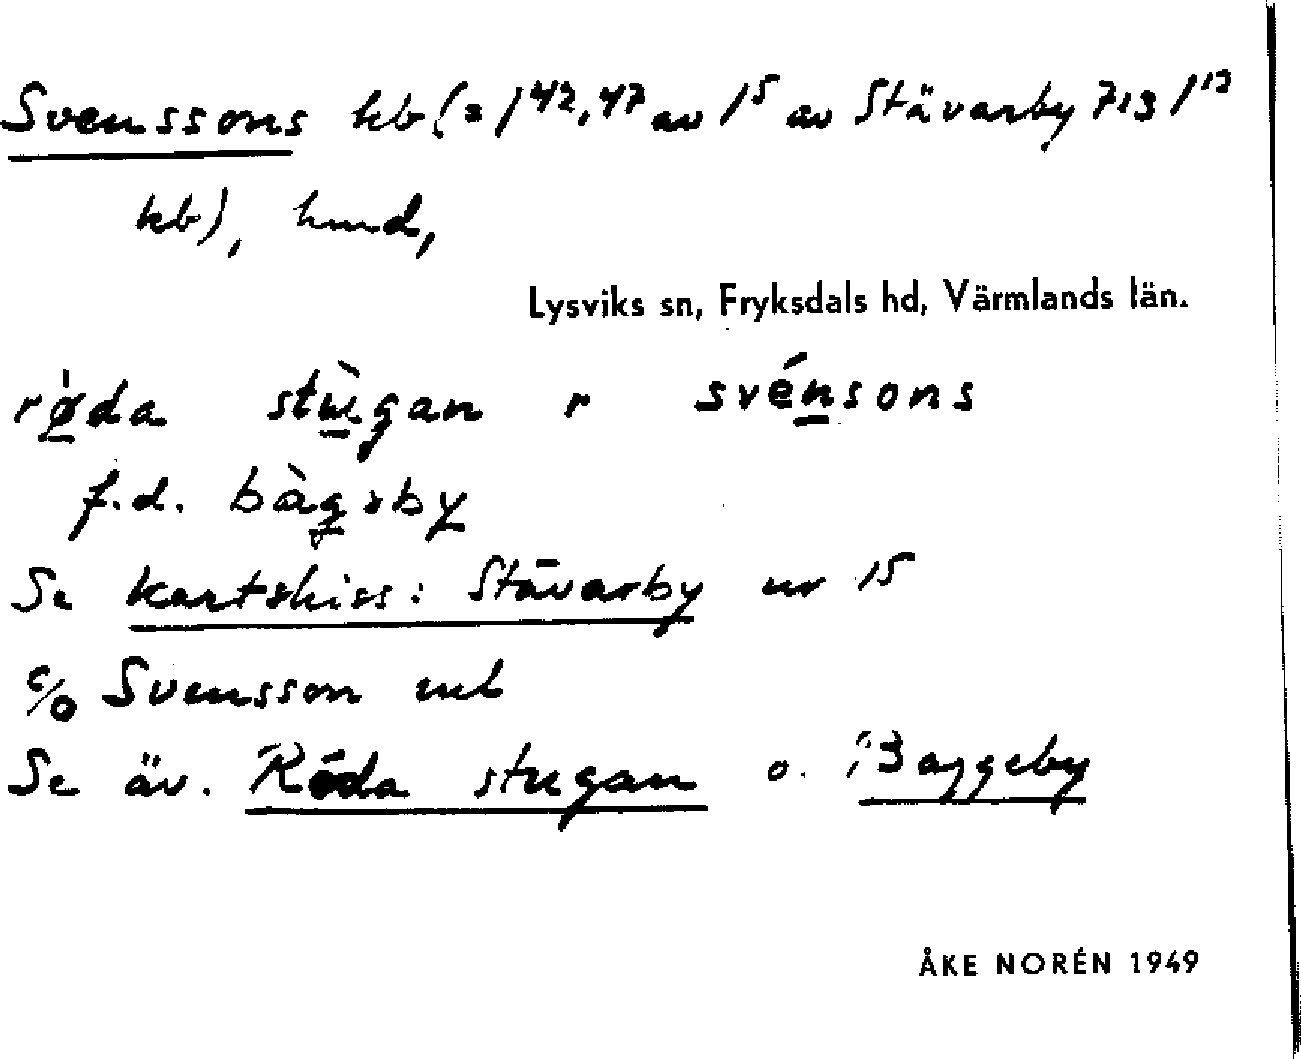 Svenssons kb (= /42,47 av /5 av Stävarby 713 /12
kb), hmd,
Lysviks sn, Fryksdals hd, Värmlands län.
rø̀da stùgan r svénsons
f.d. bàgsby
Se kartskiss: Stävarby nr 15
c/o Svensson
Se äv. Röda stugan o. Baggeby
ÅKE NORÉN 1949